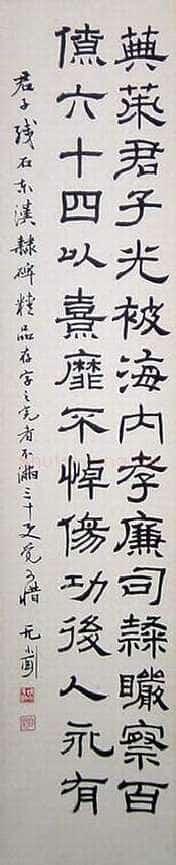 君子光被海内孝廉司隸察百
僚六十四以熹靡不悼傷功後人永有
君子残石东漢隸碑精品存字之完者不滿三十更觉可惜